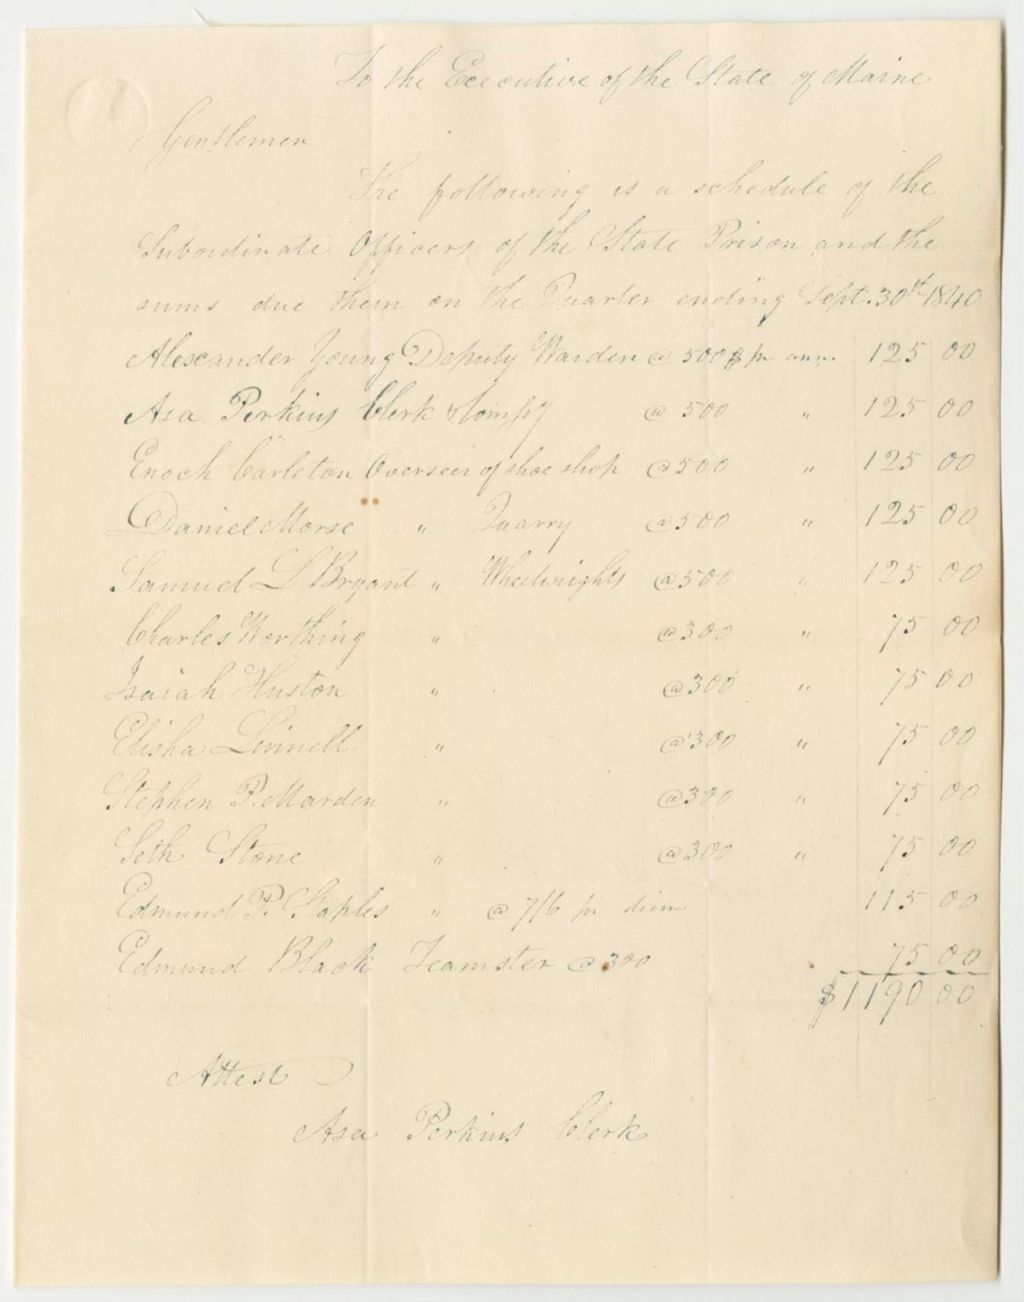 To the Executive of the State of Maine
Gentlemen
The following is a schedule of the
Subordinate Officers of the State Prison and the
sums due them on the Quarter ending Sept. 30th 1840
Alexander Young Deputy Warden @ 500$ pr ann. 125 00
Asa Perkins Clerk & Comssy @ 500 " 125 00
Enoch Carleton Overseer of shoe shop @ 500 " 125 00
Daniel Morse " Quarry @ 500 " 125 00
Samuel L Bryant " Wheelwrights @ 500 " 125 00
Charles Worthing " @ 300 " 75 00
Isaiah Huston " @ 300 " 75 00
Elisha Linnell " @ 300 " 75 00
Stephen P. Marden " @ 300 " 75 00
Seth Stone " @ 300 " 75 00
Edmund P. Staples " @ 7/6 pr diem 115 00
Edmund Black Teamster @ 300 75 00
$1190 00
Attest
Asa Perkins Clerk